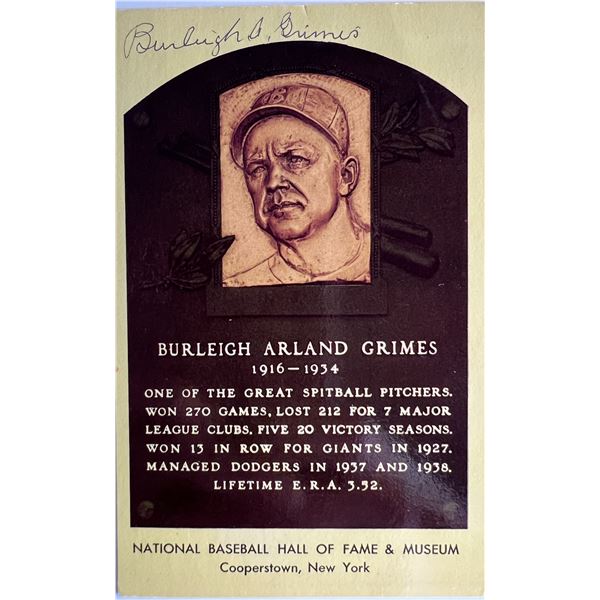 Burleigh A. Grimes
B
BURLEIGH ARLAND GRIMES
1916-1934
ONE OF THE GREAT SPITBALL PITCHERS.
WON 270 GAMES, LOST 212 FOR 7 MAJOR
LEAGUE CLUBS. FIVE 20 VICTORY SEASONS.
WON 13 IN ROW FOR GIANTS IN 1927.
MANAGED DODGERS IN 1937 AND 1938.
LIFETIME E.R.A. 3.52.
NATIONAL BASEBALL HALL OF FAME & MUSEUM
Cooperstown, New York